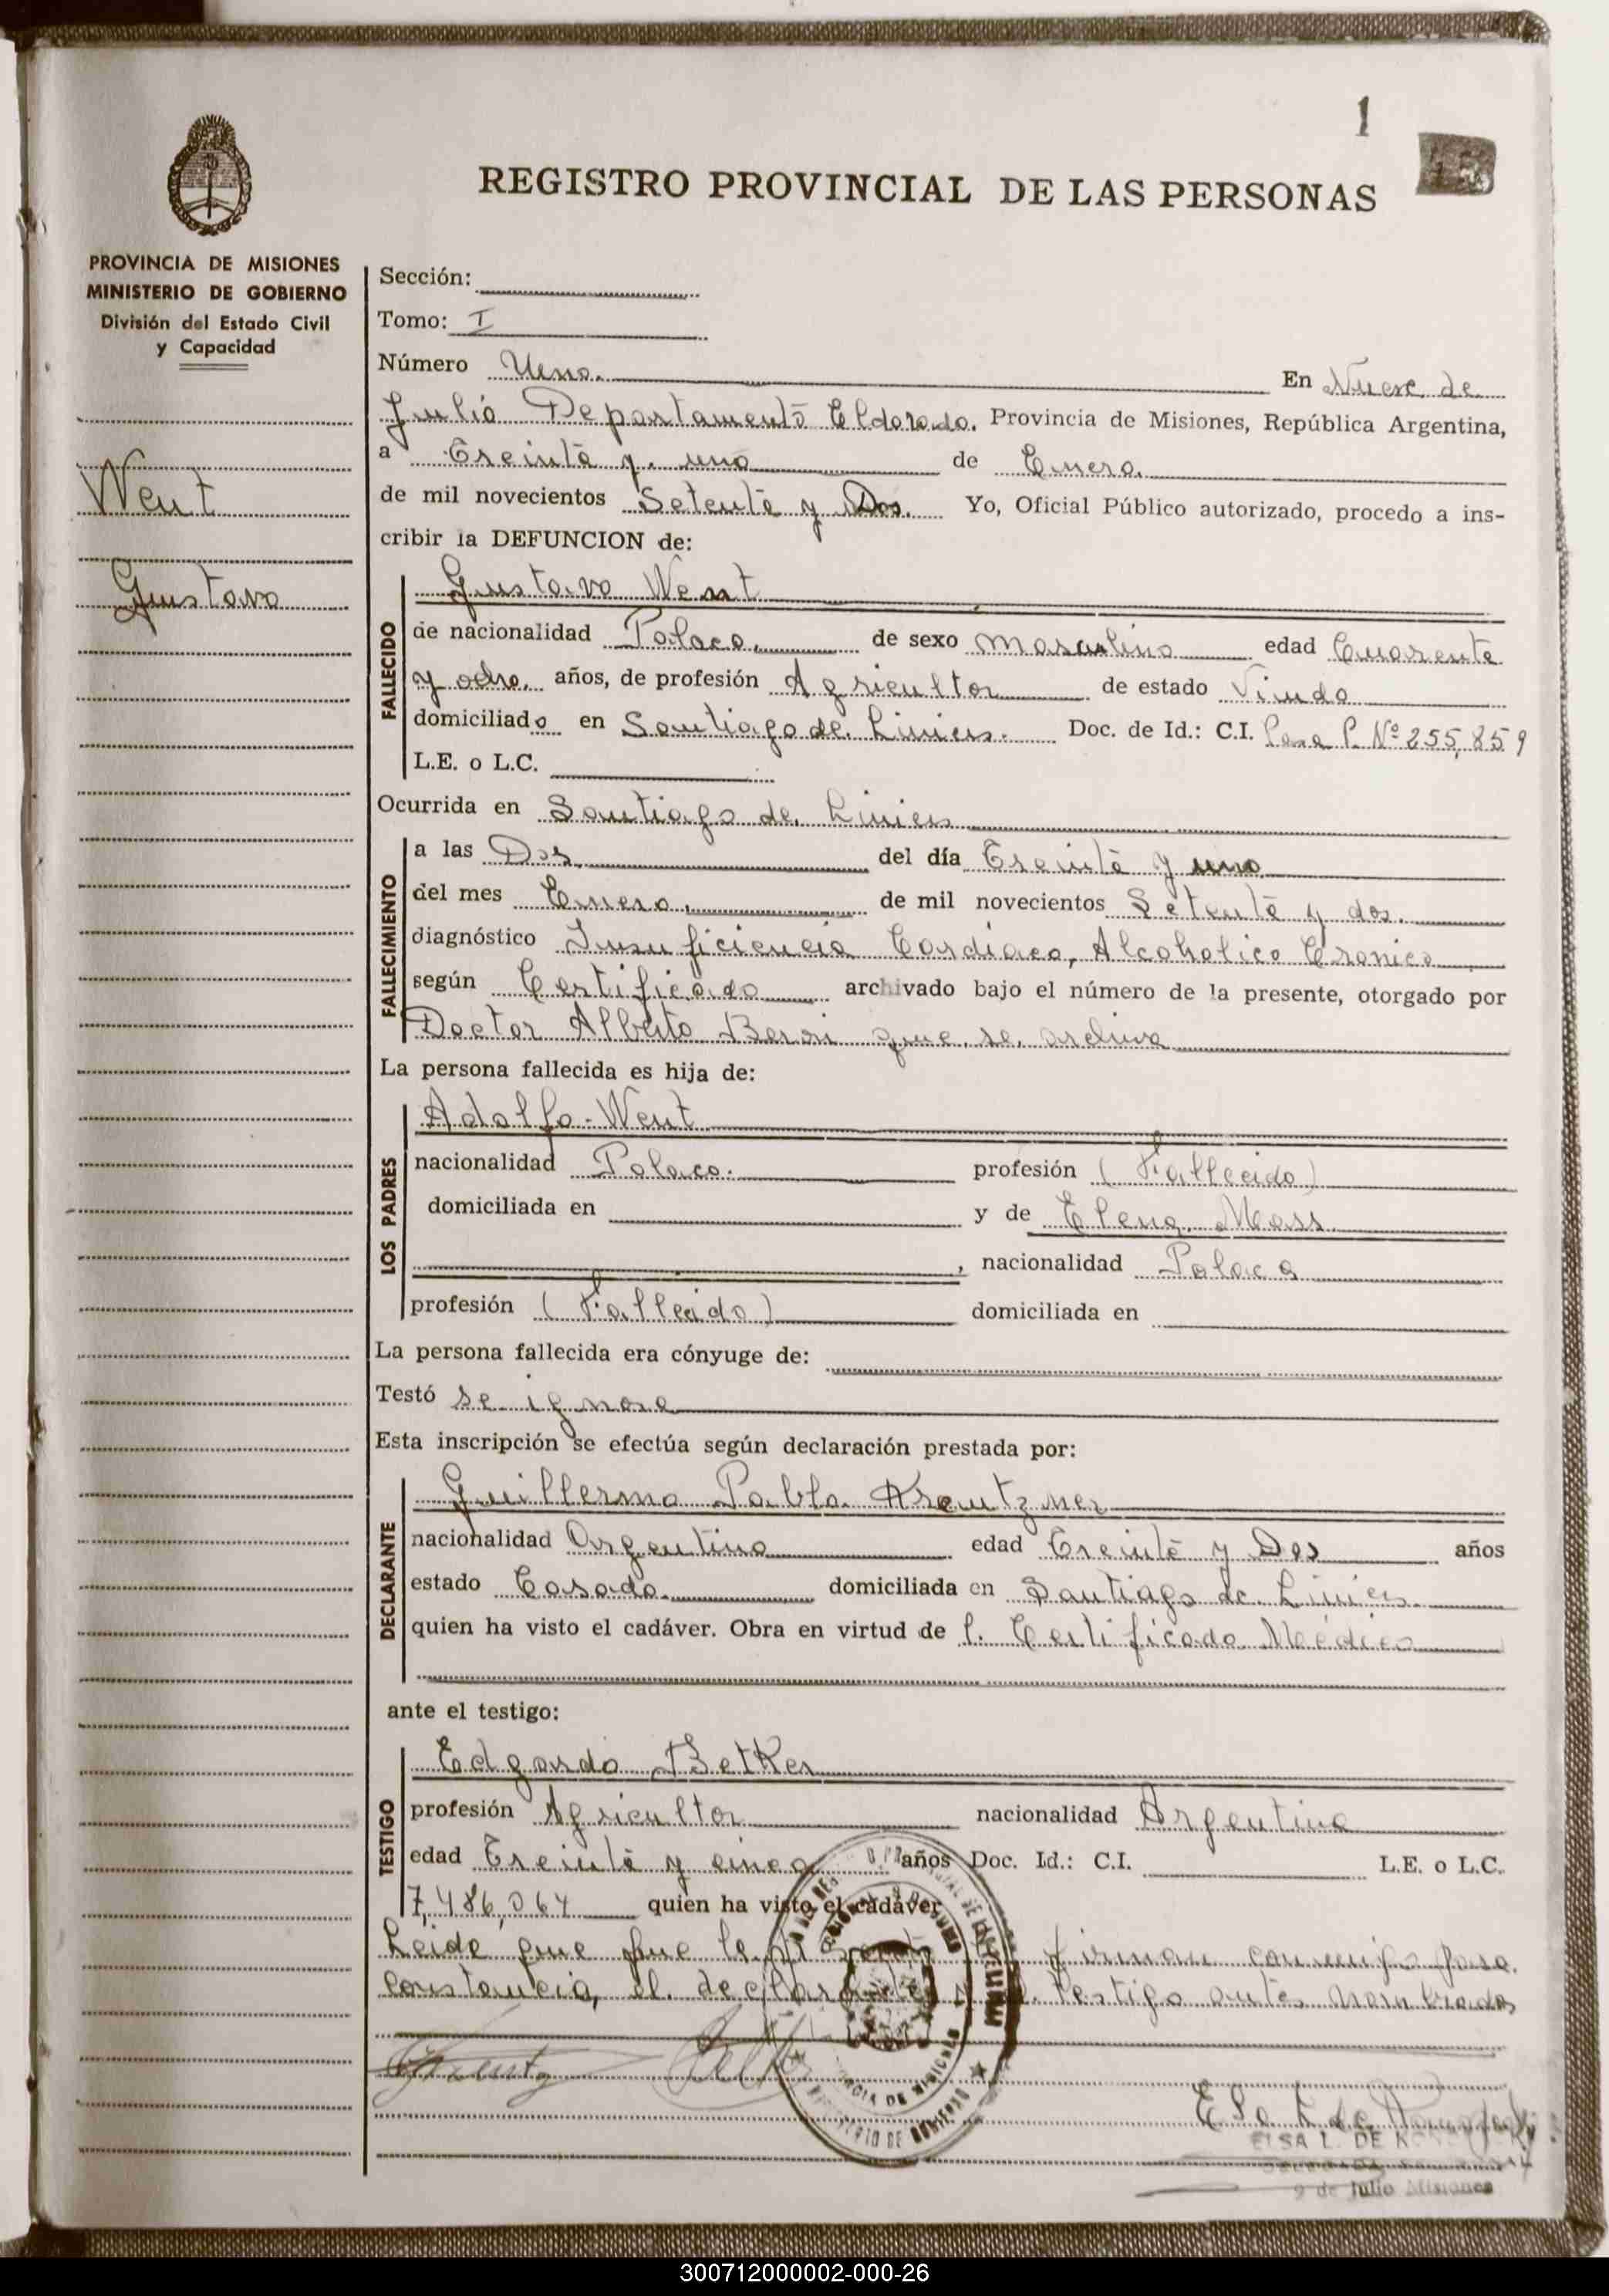 1
REGISTRO PROVINCIAL DE LAS PERSONAS
PROVINCIA DE MISIONES
MINISTERIO DE GOBIERNO
División del Estado Civil
y Capacidad
Went
Gustavo
Sección:
Tomo: I
Número Uno. En Nueve de
Julio Departamento Eldorado. Provincia de Misiones, República Argentina,
a Treinta y uno de Enero
de mil novecientos Setenta y Dos. Yo, Oficial Público autorizado, procedo a ins-
cribir la DEFUNCION de:
FALLECIDO
Gustavo Went
de nacionalidad Polaco, de sexo masculino edad Cuarenta
y ocho, años, de profesión Agricultor de estado Viudo
domiciliado en Santiago de Liniers. Doc. de Id.: C.I. P. Nº 255,859
L.E. o L.C.
Ocurrida en Santiago de Liniers
FALLECIMIENTO
a las Dos del día Treinta y uno
del mes Enero, de mil novecientos Setenta y dos.
diagnóstico Insuficiencia Cardiaca, Alcoholico Cronico
según Certificado archivado bajo el número de la presente, otorgado por
Doctor Alberto que se archiva
La persona fallecida es hija de:
LOS PADRES
Adolfo Went
nacionalidad Polaco. profesión (Fallecido)
domiciliada en y de Elena Mass
, nacionalidad Polaca
profesión (Fallecido) domiciliada en
La persona fallecida era cónyuge de:
Testó se ignora
Esta inscripción se efectúa según declaración prestada por:
DECLARANTE
Guillermo Pablo Kreutzner
nacionalidad Argentino edad Treinta y Dos años
estado Casado. domiciliada en Santiago de Liniers.
quien ha visto el cadáver. Obra en virtud de l. Certificado Médico
ante el testigo:
TESTIGO
Edgardo Betker
profesión Agricultor nacionalidad Argentina
edad Treinta y cinco años Doc. Id.: C.I. L.E. o L.C.
7,486,064 quien ha visto el cadáver
Leida que fue la firman conmigo para
constancia, el declarante y el testigo antes nombrados
ELSA L. DE
9 de Julio Misiones
300712000002-000-26